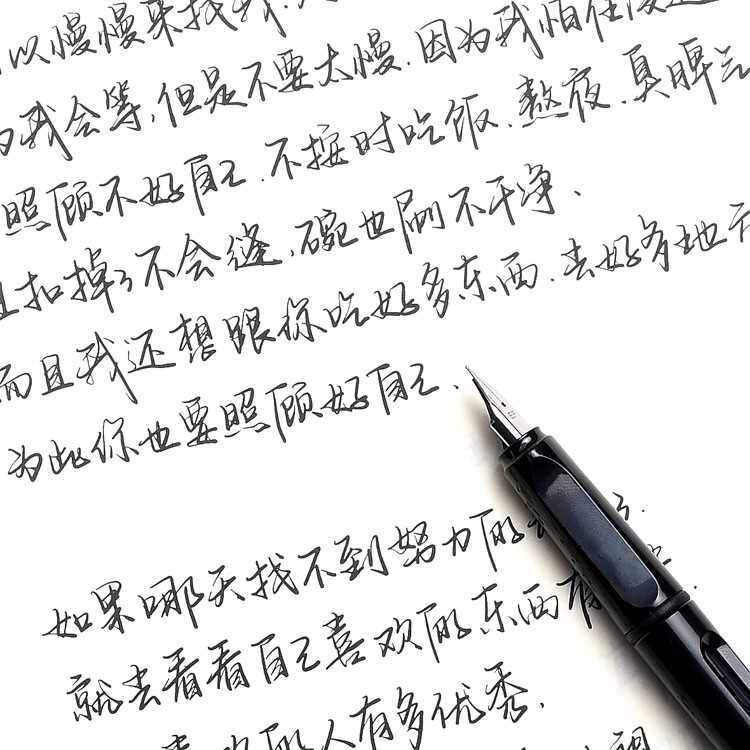 以慢慢来找我
我会等,但是不要太慢.因为我怕
照顾不好自己.不按时吃饭.熬夜.臭脾气
扣掉了不会缝.碗也刷不干净、
而且我还想跟你吃好多东西.去好多地
为此你也要照顾好自己.
如果哪天找不到努力的
就去看看自己喜欢的东西有
喜欢的人有多优秀.